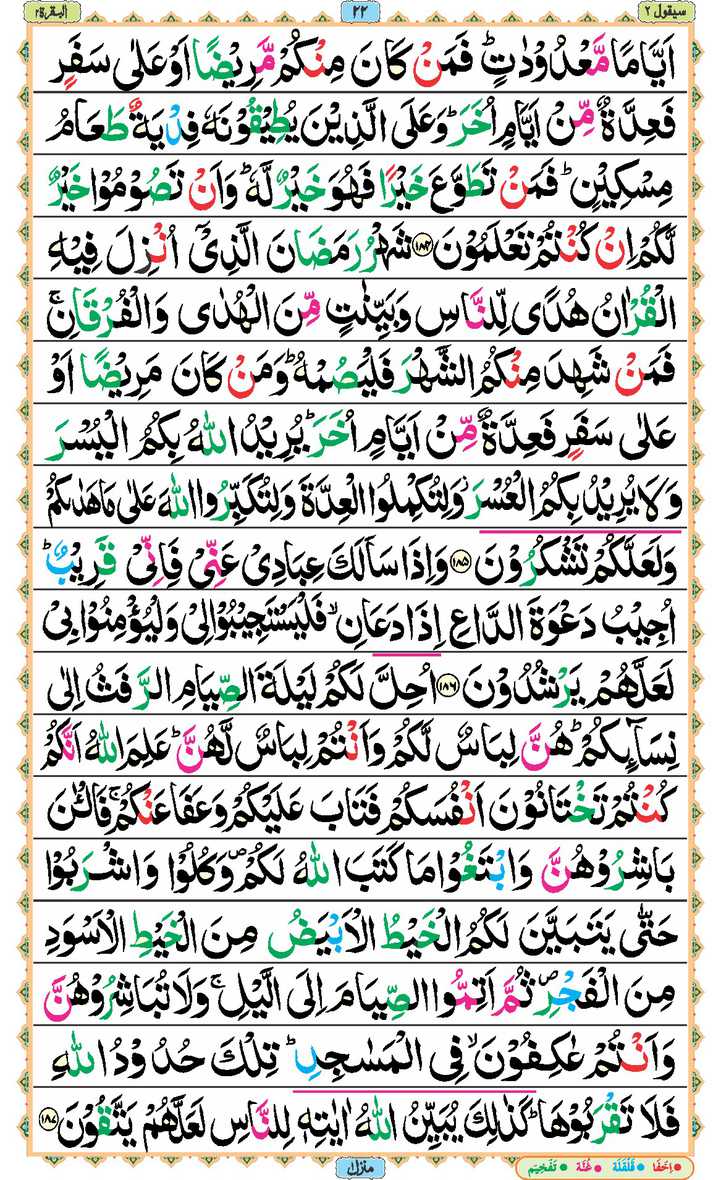 سيقول ٢
٢٢
البقرة ٢
اَيَّامًا مَّعْدُوْدٰتٍ ؕ فَمَنْ كَانَ مِنْكُمْ مَّرِيْضًا اَوْ عَلٰى سَفَرٍ
فَعِدَّةٌ مِّنْ اَيَّامٍ اُخَرَ ؕ وَعَلَى الَّذِيْنَ يُطِيْقُوْنَهٗ فِدْيَةٌ طَعَامُ
مِسْكِيْنٍ ؕ فَمَنْ تَطَوَّعَ خَيْرًا فَهُوَ خَيْرٌ لَّهٗ ؕ وَاَنْ تَصُوْمُوْا خَيْرٌ
لَّكُمْ اِنْ كُنْتُمْ تَعْلَمُوْنَ ﴿١٨٤﴾ شَهْرُ رَمَضَانَ الَّذِىْٓ اُنْزِلَ فِيْهِ
الْقُرْاٰنُ هُدًى لِّلنَّاسِ وَبَيِّنٰتٍ مِّنَ الْهُدٰى وَالْفُرْقَانِ ۚ
فَمَنْ شَهِدَ مِنْكُمُ الشَّهْرَ فَلْيَصُمْهُ ؕ وَمَنْ كَانَ مَرِيْضًا اَوْ
عَلٰى سَفَرٍ فَعِدَّةٌ مِّنْ اَيَّامٍ اُخَرَ ؕ يُرِيْدُ اللّٰهُ بِكُمُ الْيُسْرَ
وَلَا يُرِيْدُ بِكُمُ الْعُسْرَ ؗ وَلِتُكْمِلُوا الْعِدَّةَ وَلِتُكَبِّرُوا اللّٰهَ عَلٰى مَا هَدٰٮكُمْ
وَلَعَلَّكُمْ تَشْكُرُوْنَ ﴿١٨٥﴾ وَاِذَا سَاَلَكَ عِبَادِىْ عَنِّىْ فَاِنِّىْ قَرِيْبٌ ؕ
اُجِيْبُ دَعْوَةَ الدَّاعِ اِذَا دَعَانِ ۙ فَلْيَسْتَجِيْبُوْا لِىْ وَلْيُؤْمِنُوْا بِىْ
لَعَلَّهُمْ يَرْشُدُوْنَ ﴿١٨٦﴾ اُحِلَّ لَكُمْ لَيْلَةَ الصِّيَامِ الرَّفَثُ اِلٰى
نِسَآٮِٕكُمْ ؕ هُنَّ لِبَاسٌ لَّكُمْ وَاَنْتُمْ لِبَاسٌ لَّهُنَّ ؕ عَلِمَ اللّٰهُ اَنَّكُمْ
كُنْتُمْ تَخْتَانُوْنَ اَنْفُسَكُمْ فَتَابَ عَلَيْكُمْ وَعَفَا عَنْكُمْ ۚ فَالْـٰٔنَ
بَاشِرُوْهُنَّ وَابْتَغُوْا مَا كَتَبَ اللّٰهُ لَكُمْ ۪ وَكُلُوْا وَاشْرَبُوْا
حَتّٰى يَتَبَيَّنَ لَكُمُ الْخَيْطُ الْاَبْيَضُ مِنَ الْخَيْطِ الْاَسْوَدِ
مِنَ الْفَجْرِ ۪ ثُمَّ اَتِمُّوا الصِّيَامَ اِلَى الَّيْلِ ۚ وَلَا تُبَاشِرُوْهُنَّ
وَاَنْتُمْ عٰكِفُوْنَ ۙ فِى الْمَسٰجِدِ ؕ تِلْكَ حُدُوْدُ اللّٰهِ
فَلَا تَقْرَبُوْهَا ؕ كَذٰلِكَ يُبَيِّنُ اللّٰهُ اٰيٰتِهٖ لِلنَّاسِ لَعَلَّهُمْ يَتَّقُوْنَ ﴿١٨٧﴾
منزل ١
اِخفَا قَلْقَلَة غُنَّه تَفْخِيْم